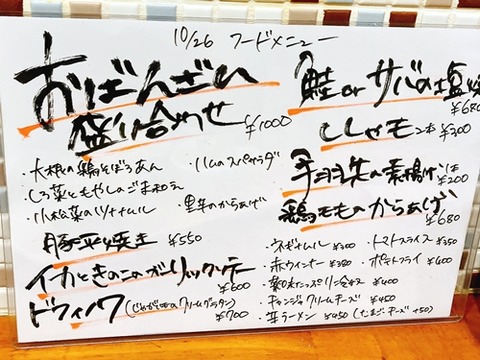 10/26 フードメニュー
おばんざい
盛り合わせ ¥1000
・大根の鶏そぼろあん
・ハムのスパサラダ
・しろ菜ともやしのごま和え
・小松菜のツナナムル
・里芋のからあげ
豚平焼き ¥550
イカときのこのガーリックソテー
¥600
ドフィノワ (じゃがいものクリームグラタン)
¥700
鮭 or サバの塩焼
¥680
ししゃも 2本 ¥300
手羽先の素揚げ 1本
¥200
鶏モモのからあげ
¥680
・ネギナムル ¥300
・トマトスライス ¥350
・赤ウインナー ¥380
・ポテトフライ ¥400
・薬味たっぷり冷奴 ¥400
・チャンジャクリームチーズ ¥450
・辛ラーメン ¥450 (たまご・チーズ +50)